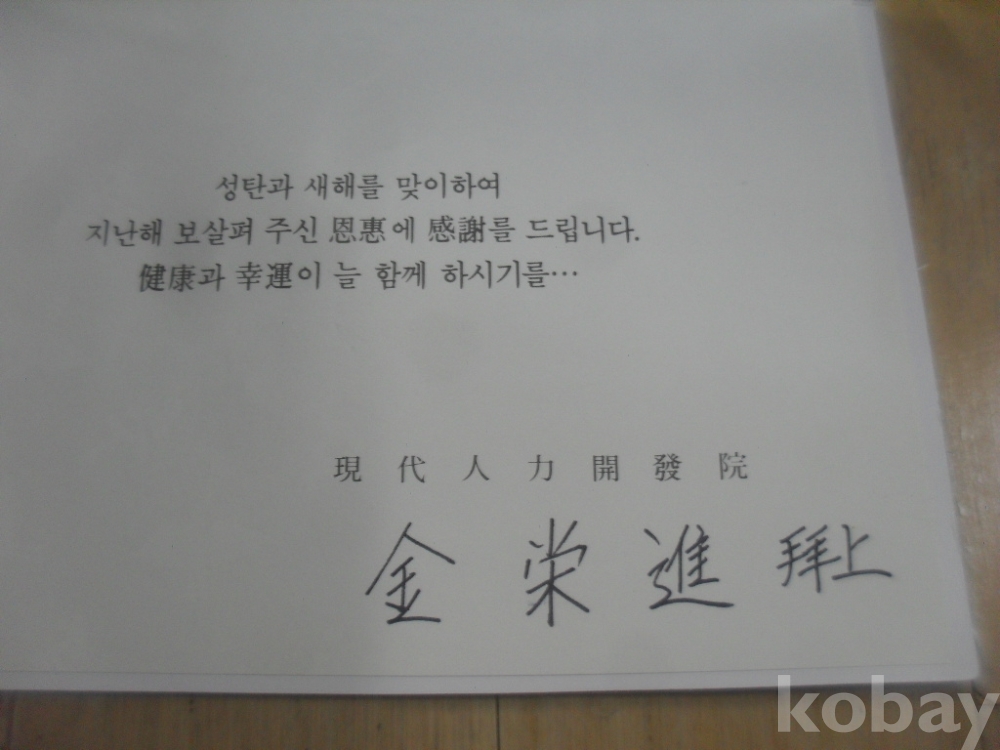 성탄과 새해를 맞이하여
지난해 보살펴 주신 恩惠에 感謝를 드립니다.
健康과 幸運이 늘 함께 하시기를…
現代人力開發院
金栄進 拜上
kobay